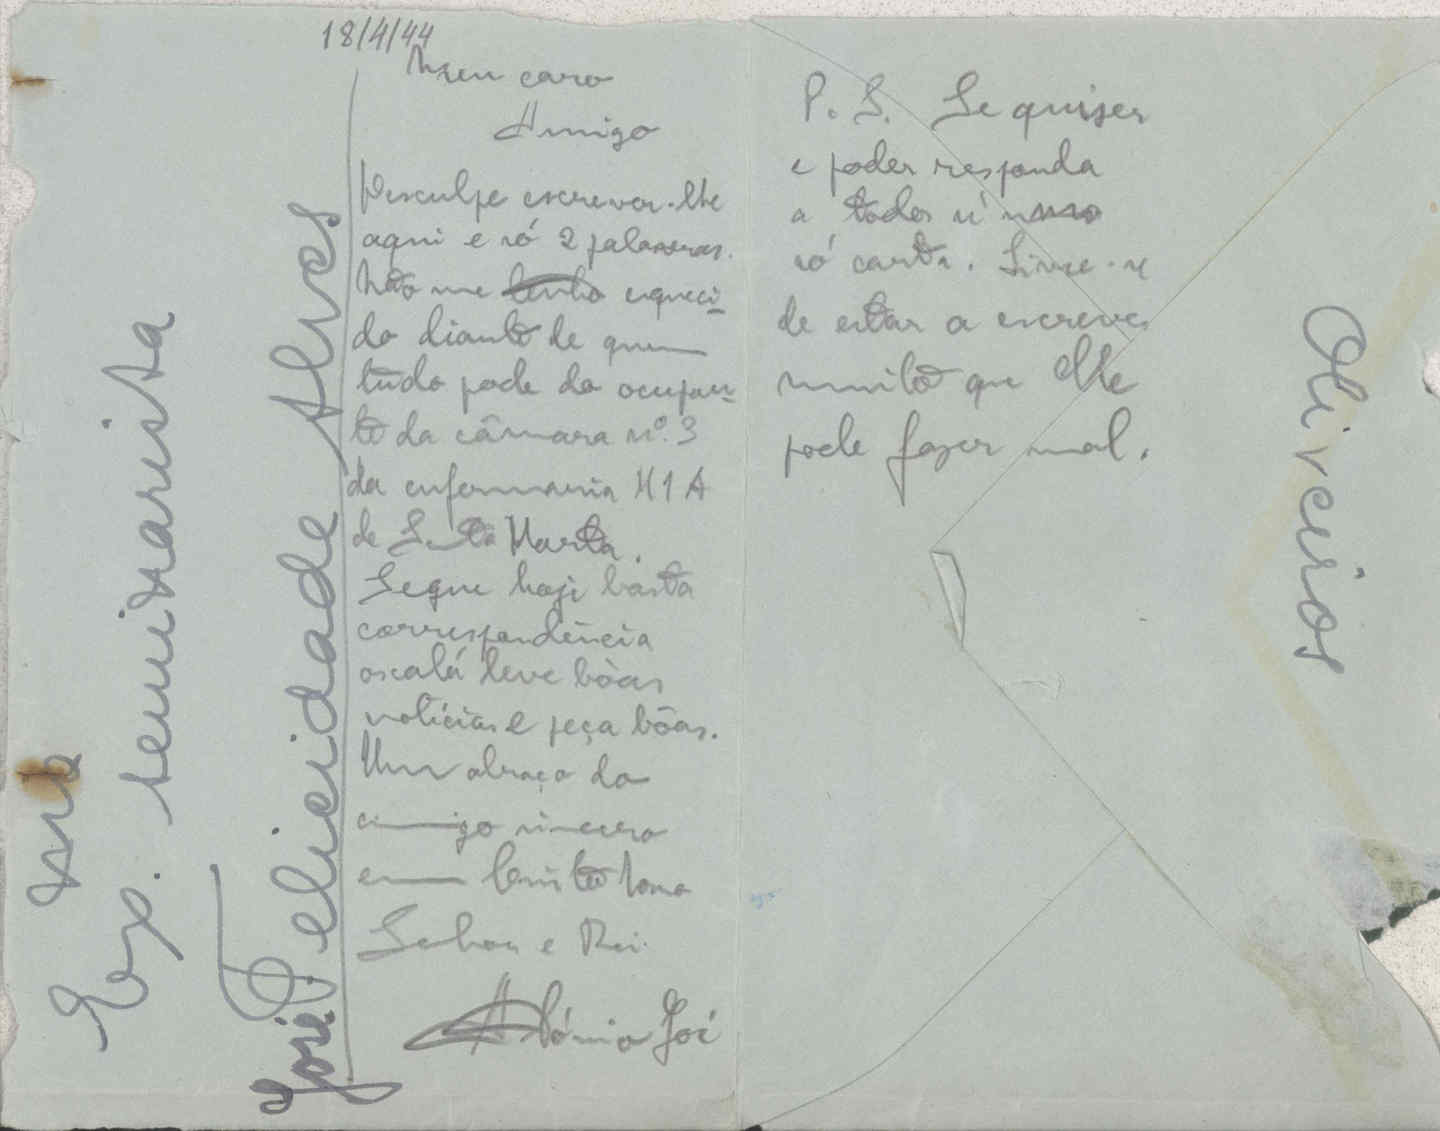 18/4/44
Meu caro
Amigo
Desculpe escrever-lhe
aqui e só 2 palavras.
Não me tenho esqueci-
do diante de quem
tudo pode do ocupan-
te da câmara nº. 3
da enfermaria H1A
de S.ta Marta.
Segue hoje basta
correspondência
oxalá leve bôas
notícias e peça bôas.
Um abraço do
amigo sincero
em
António José
P. S. Se quiser
e poder responda
a todos n'uma
só carta. Livre-se
de estar a escrever
muito que lhe
pode fazer mal.
Ex.
seminarista
José Felicidade Alves
Oliveiros